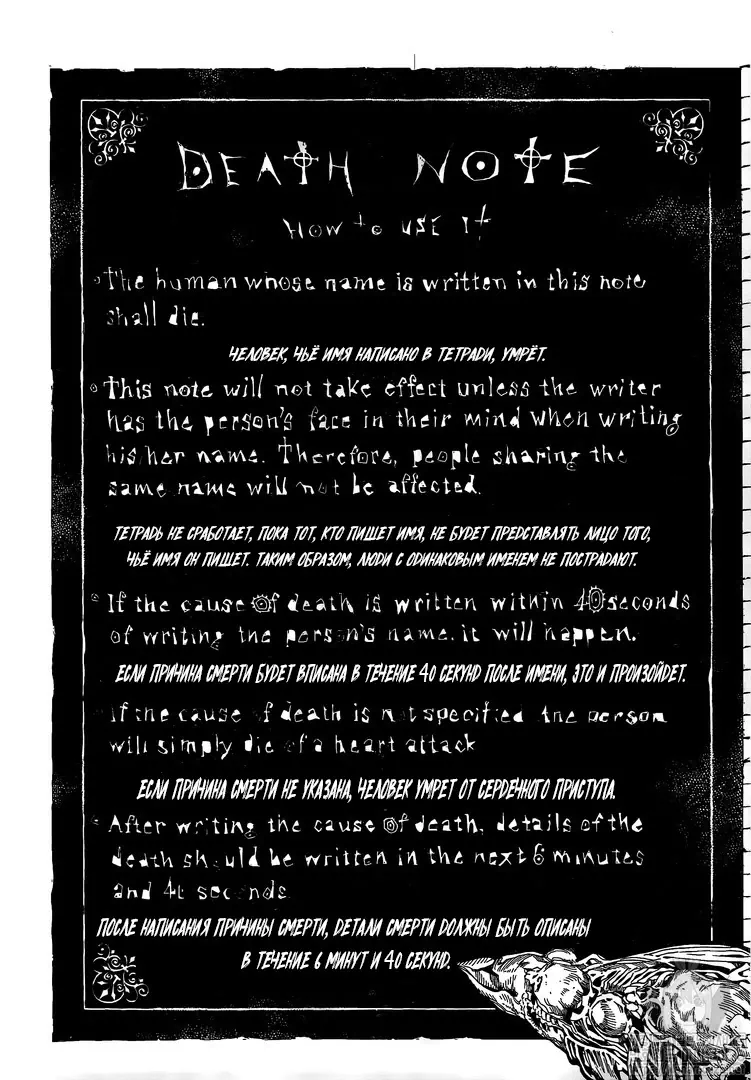 DEATH NOTE
HOW to USE It
The human whose name is written in this note
shall die.
ЧЕЛОВЕК, ЧЬЁ ИМЯ НАПИСАНО В ТЕТРАДИ, УМРЁТ.
This note will not take effect unless the writer
has the person's face in their mind when writing
his/her name. Therefore, people sharing the
same name will not be affected.
ТЕТРАДЬ НЕ СРАБОТАЕТ, ПОКА ТОТ, КТО ПИШЕТ ИМЯ, НЕ БУДЕТ ПРЕДСТАВЛЯТЬ ЛИЦО ТОГО,
ЧЬЁ ИМЯ ОН ПИШЕТ. ТАКИМ ОБРАЗОМ, ЛЮДИ С ОДИНАКОВЫМ ИМЕНЕМ НЕ ПОСТРАДАЮТ.
If the cause of death is written within 40 seconds
of writing the person's name, it will happen.
ЕСЛИ ПРИЧИНА СМЕРТИ БУДЕТ ВПИСАНА В ТЕЧЕНИЕ 40 СЕКУНД ПОСЛЕ ИМЕНИ, ЭТО И ПРОИЗОЙДЕТ.
If the cause of death is not specified the person
will simply die of a heart attack
ЕСЛИ ПРИЧИНА СМЕРТИ НЕ УКАЗАНА, ЧЕЛОВЕК УМРЕТ ОТ СЕРДЕЧНОГО ПРИСТУПА.
After writing the cause of death, details of the
death should be written in the next 6 minutes
and 40 seconds
ПОСЛЕ НАПИСАНИЯ ПРИЧИНЫ СМЕРТИ, DЕТАЛИ СМЕРТИ DОЛЖНЫ БЫТЬ ОПИСАНЫ
В ТЕЧЕНИЕ 6 МИНУТ И 40 СЕКУНД.